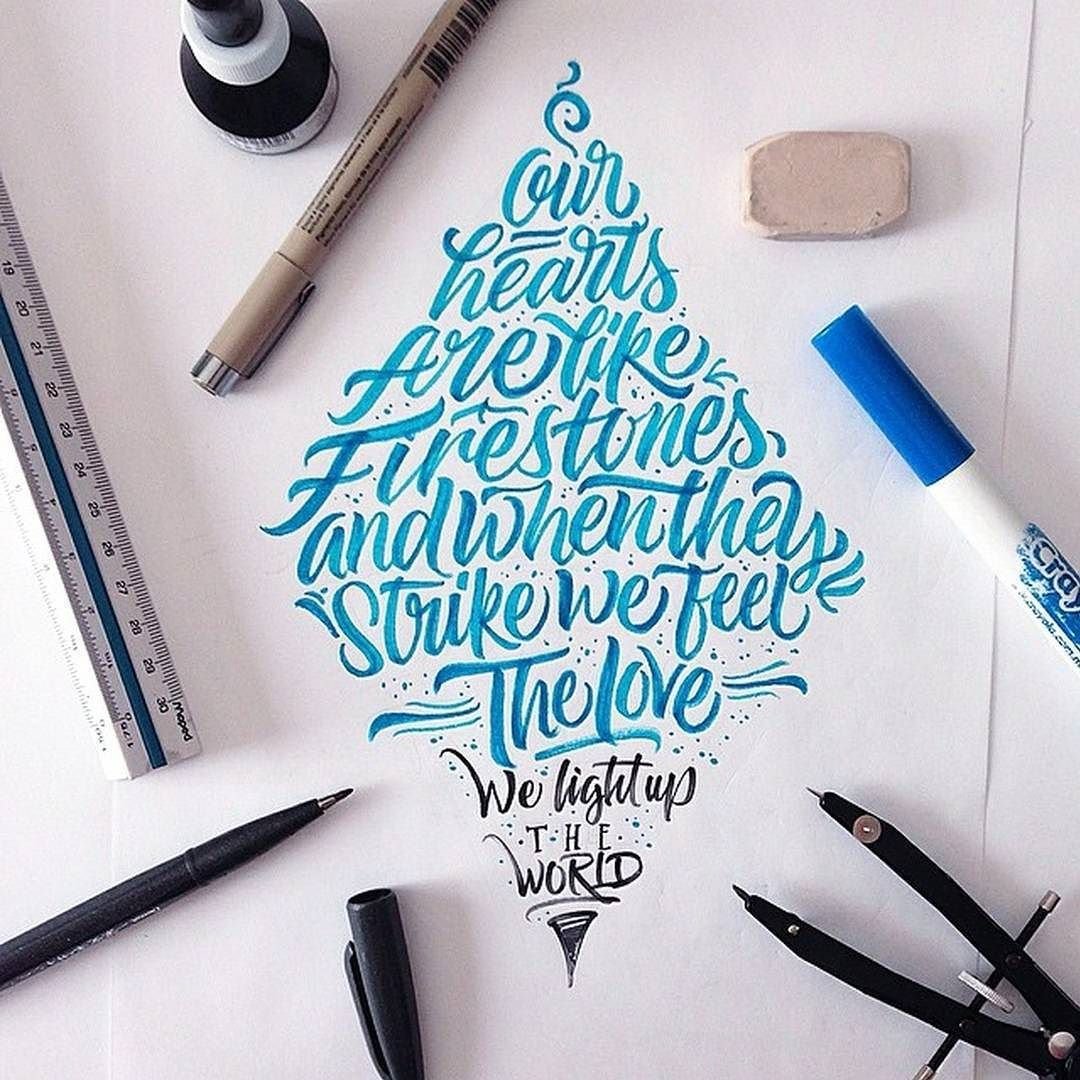 Our
hearts
Are like
Firestones,
and when they
Strike we feel
The Love
We light up
THE
WORLD
Cray
19
20
21
22
23
24
25
26
27
28
29
30